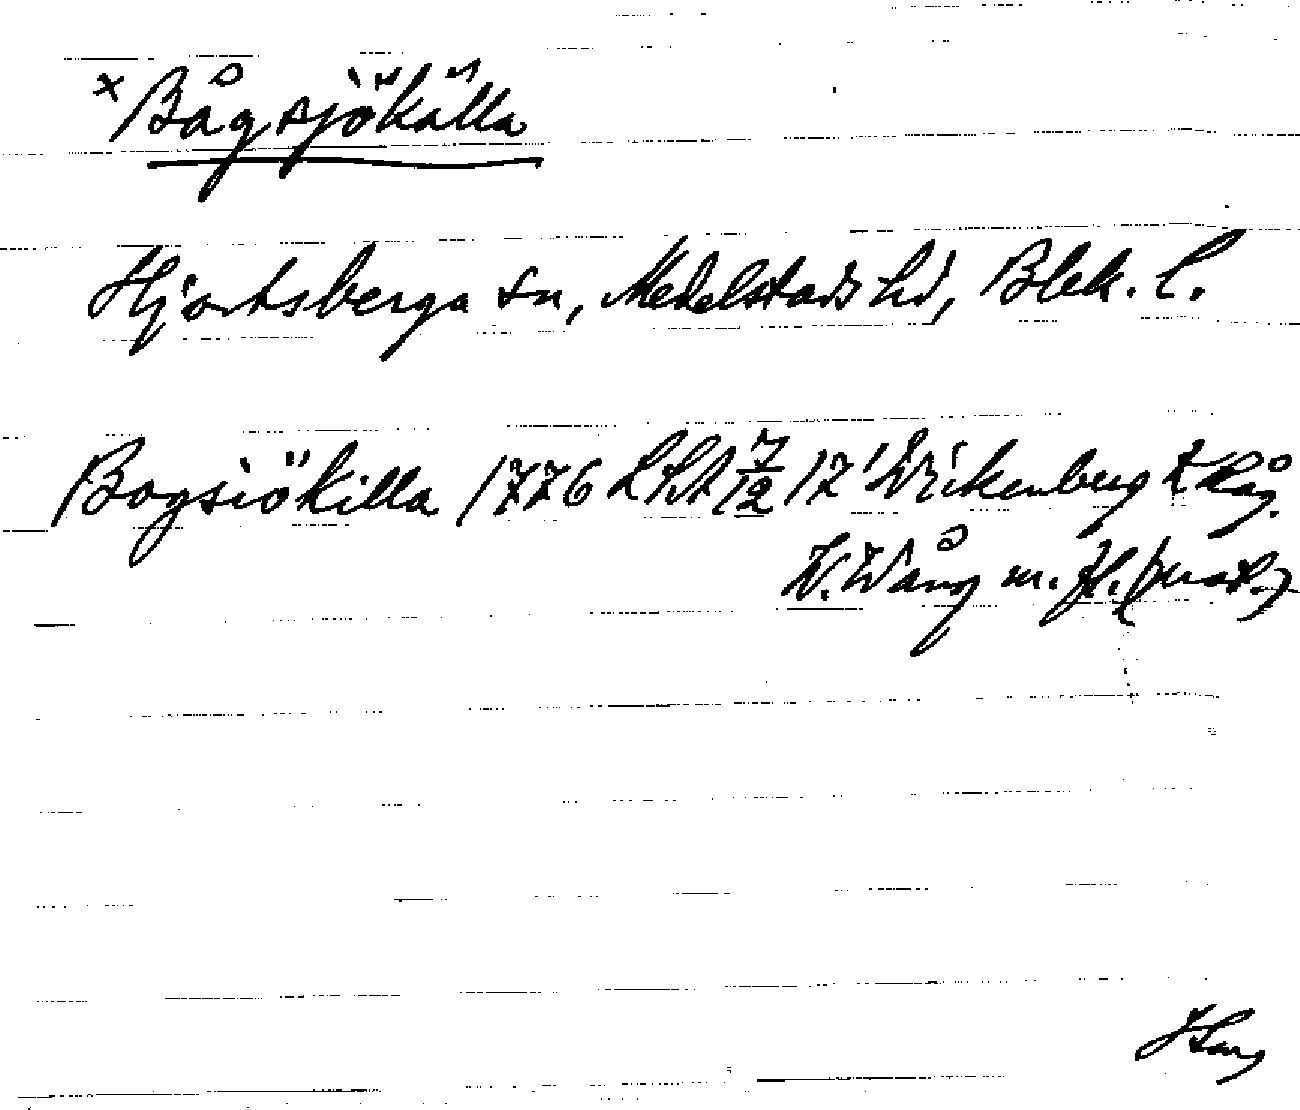 x Bågsjökälla
Hjortsberga sn, Medelstads hd, Blek. l.
Bogsiökilla 1776 LSA 7/12 17 Wickenberg t Råg.
V. Wång m. fl.